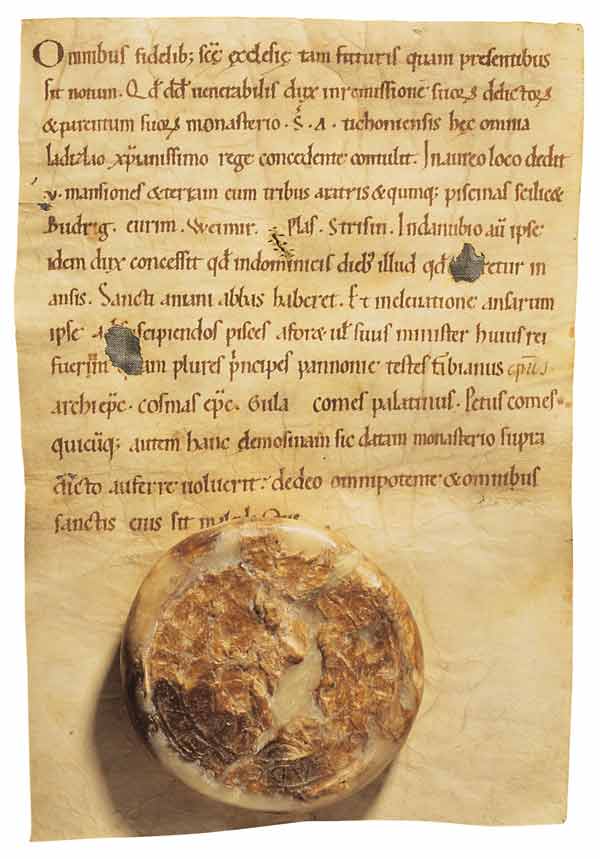 Omnibus fidelib; sc̄ę ęcclesię tam futuris quam presentibus
sit notum. Qđ dđ uenerabilis dux inremissionē suoꝝ delictoꝝ
& parentum suoꝝ monasterio . S . A . tichoniensis hęc omnia
ladizlao xp̄ianissimo rege concedente contulit. In aureo loco dedit
v. mansiones & terram cum tribus aratris & quinq; piscinas scilic&
Budrig. eurim. Weimir. Plas. Strisin. Indanubio aū ipse
idem dux concessit qđ indominicis dieb; illud qđ retur in
ansis. Sancti aniani abbas haberet. Et ineleuatione ansarum
ipse scipiendos pisces aforas uł suus minister huius rei
fuerun plures p̄ncipes pannonie testes fabianus ep̄us
archiep̄c. cosmas ep̄c. Gula comes palatinus. Petus comes.
quicūq; autem hanc elemosinam sic datam monasterio supra
dicto auferre uoluerit: dedeo omnipotente & omnibus
sanctis eius sit